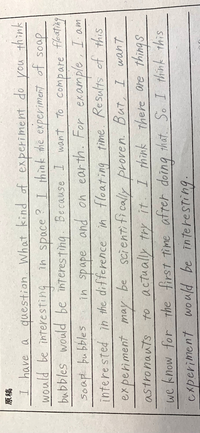 原稿
I have a question. What kind of experiment do you think
would be interesting in space? I think the experiment of soap
bubbles would be interesting. Because I want to compare floating
soap bubbles in space and on earth. For example, I am
interested in the difference in floating time. Results of this
experiment may be scientifically proven. But, I want
astronauts to actually try it. I think there are things
we know for the first time after doing that. So I think this
experiment would be interesting.